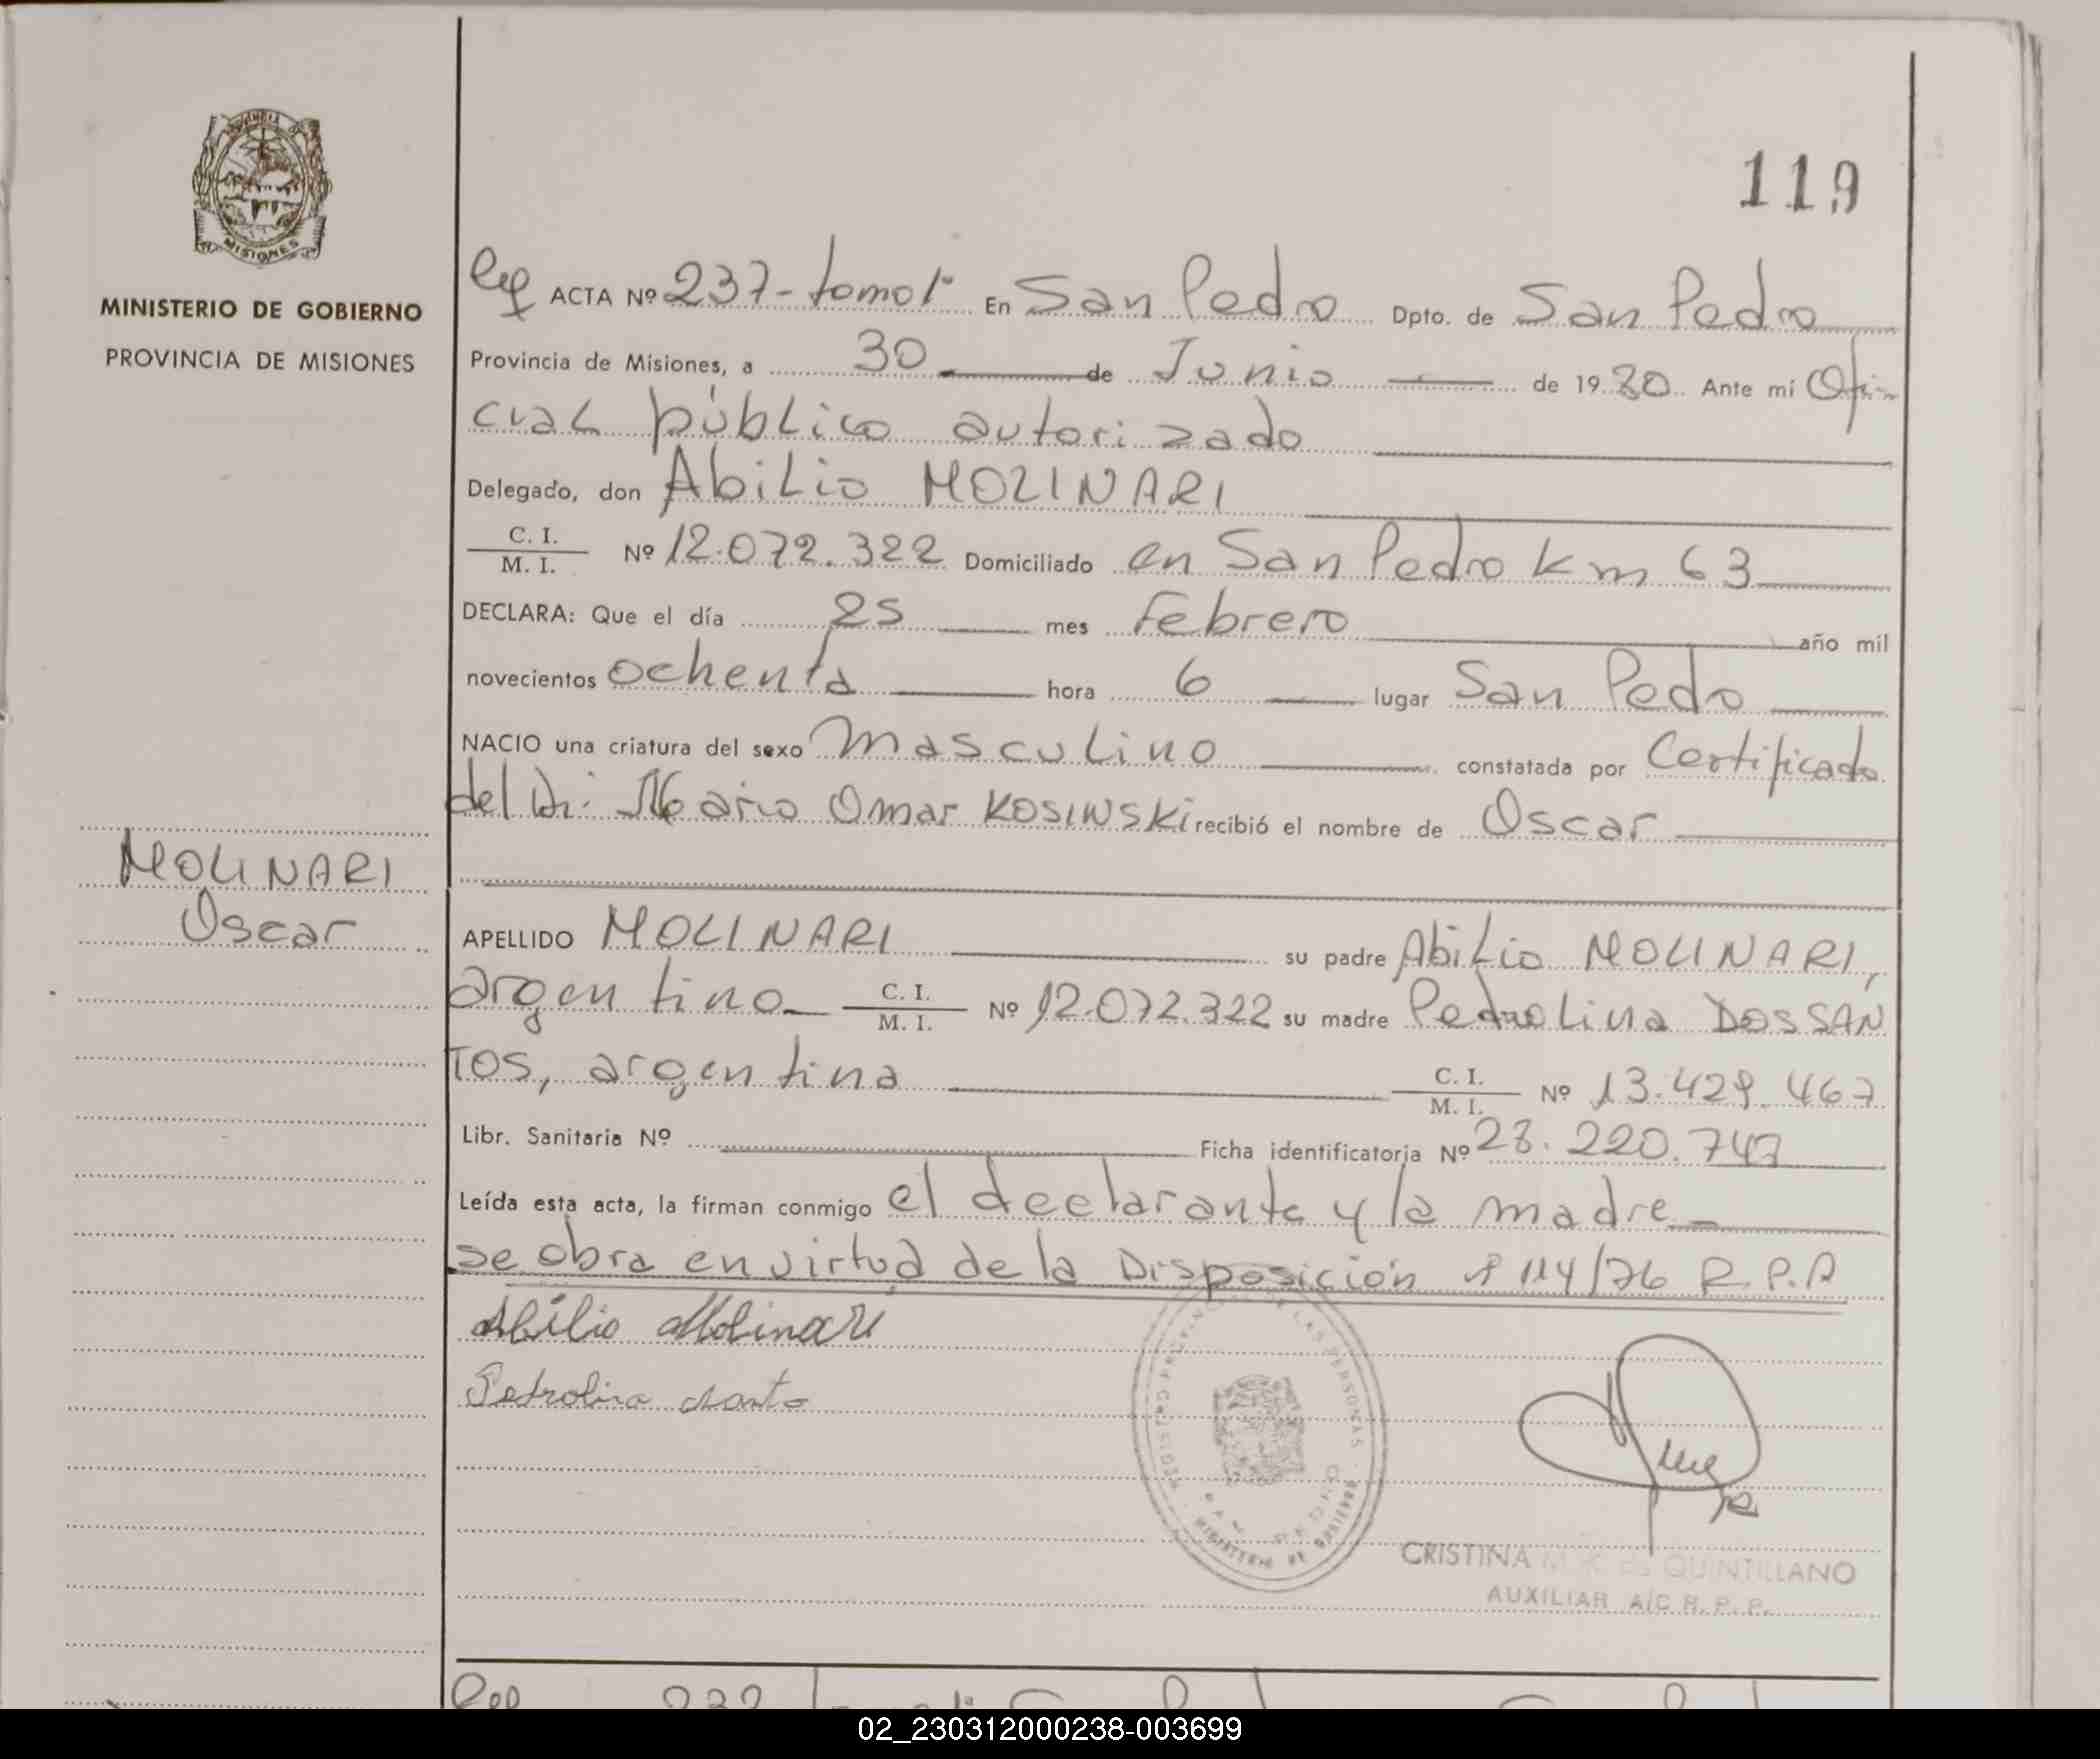 119
MINISTERIO DE GOBIERNO
PROVINCIA DE MISIONES
MISIONES
ACTA Nº 237-tomo 1º En San Pedro Dpto. de San Pedro
Provincia de Misiones, a 30 de Junio de 1980 Ante mí Ofi-
cial público autorizado
Delegado, don Abilio MOLINARI
C. I.
M. I. Nº 12.072.322 Domiciliado en San Pedro Km 63
DECLARA: Que el día 25 mes Febrero año mil
novecientos ochenta hora 6 lugar San Pedro
NACIO una criatura del sexo Masculino constatada por Certificado
del Dr. Mario Omar KOSINSKI recibió el nombre de Oscar
MOLINARI
Oscar
APELLIDO MOLINARI su padre Abilio MOLINARI,
argentino C. I.
M. I. Nº 12.072.322 su madre Pedrolina DOSSAN
TOS, argentina C. I.
M. I. Nº 13.429.467
Libr. Sanitaria Nº Ficha identificatoria Nº 28.220.747
Leída esta acta, la firman conmigo el declarante y la madre
se obra en virtud de la Disposición nº 114/76 R.P.P
Abilio Molinari
Petrolina
MINISTERIO DE GOBIERNO
CRISTINA M. K. de QUINTILLANO
AUXILIAR A/C R. P. P.
02_230312000238-003699